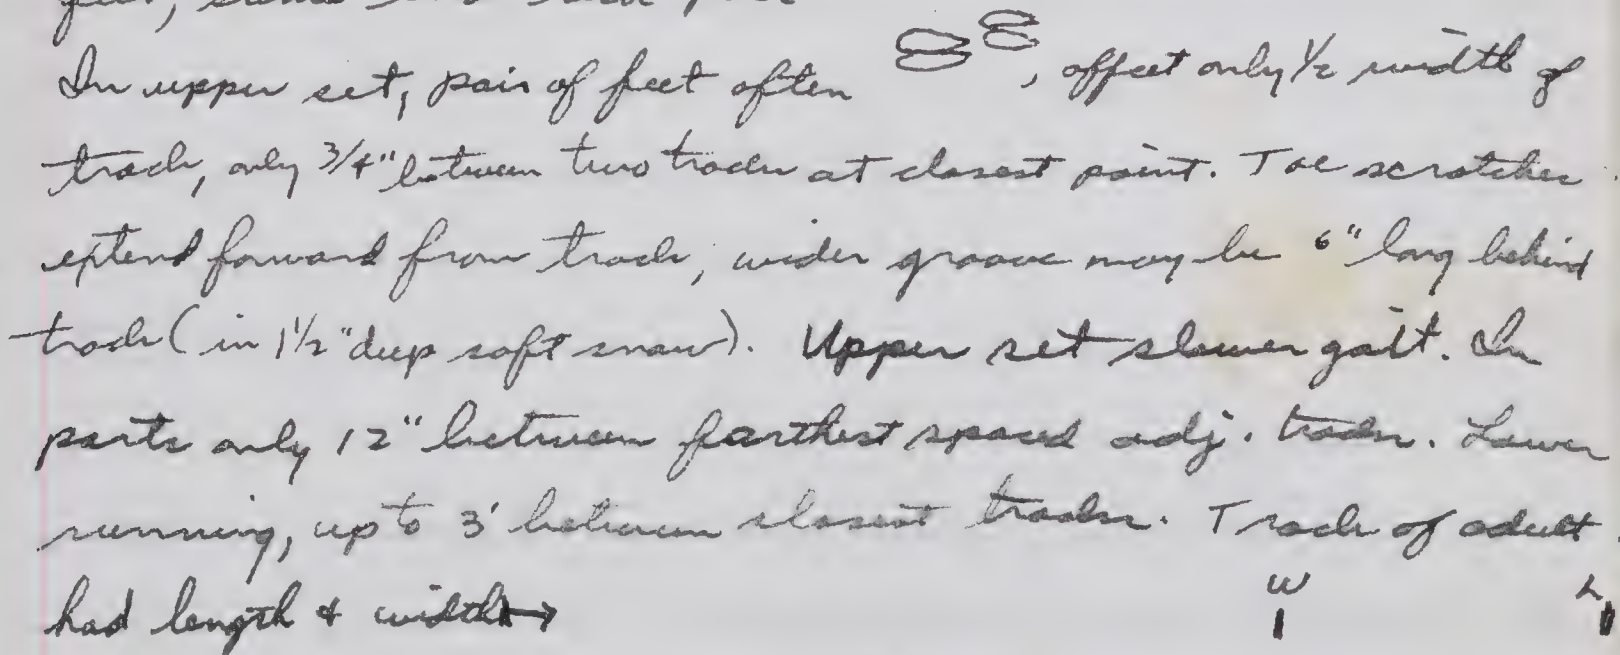 feet,
In upper set, pair of feet often , offset only 1/2 width of
track, only 3/4" between two tracks at closest point. Toe scratches
extend forward from track, wider groove may be 6" long behind
track (in 1 1/2" deep soft snow). Upper set slower gait. In
parts only 12" between farthest spaced adj. tracks. Lower
running, up to 3' between closest tracks. Track of adult
had length & width →
W L